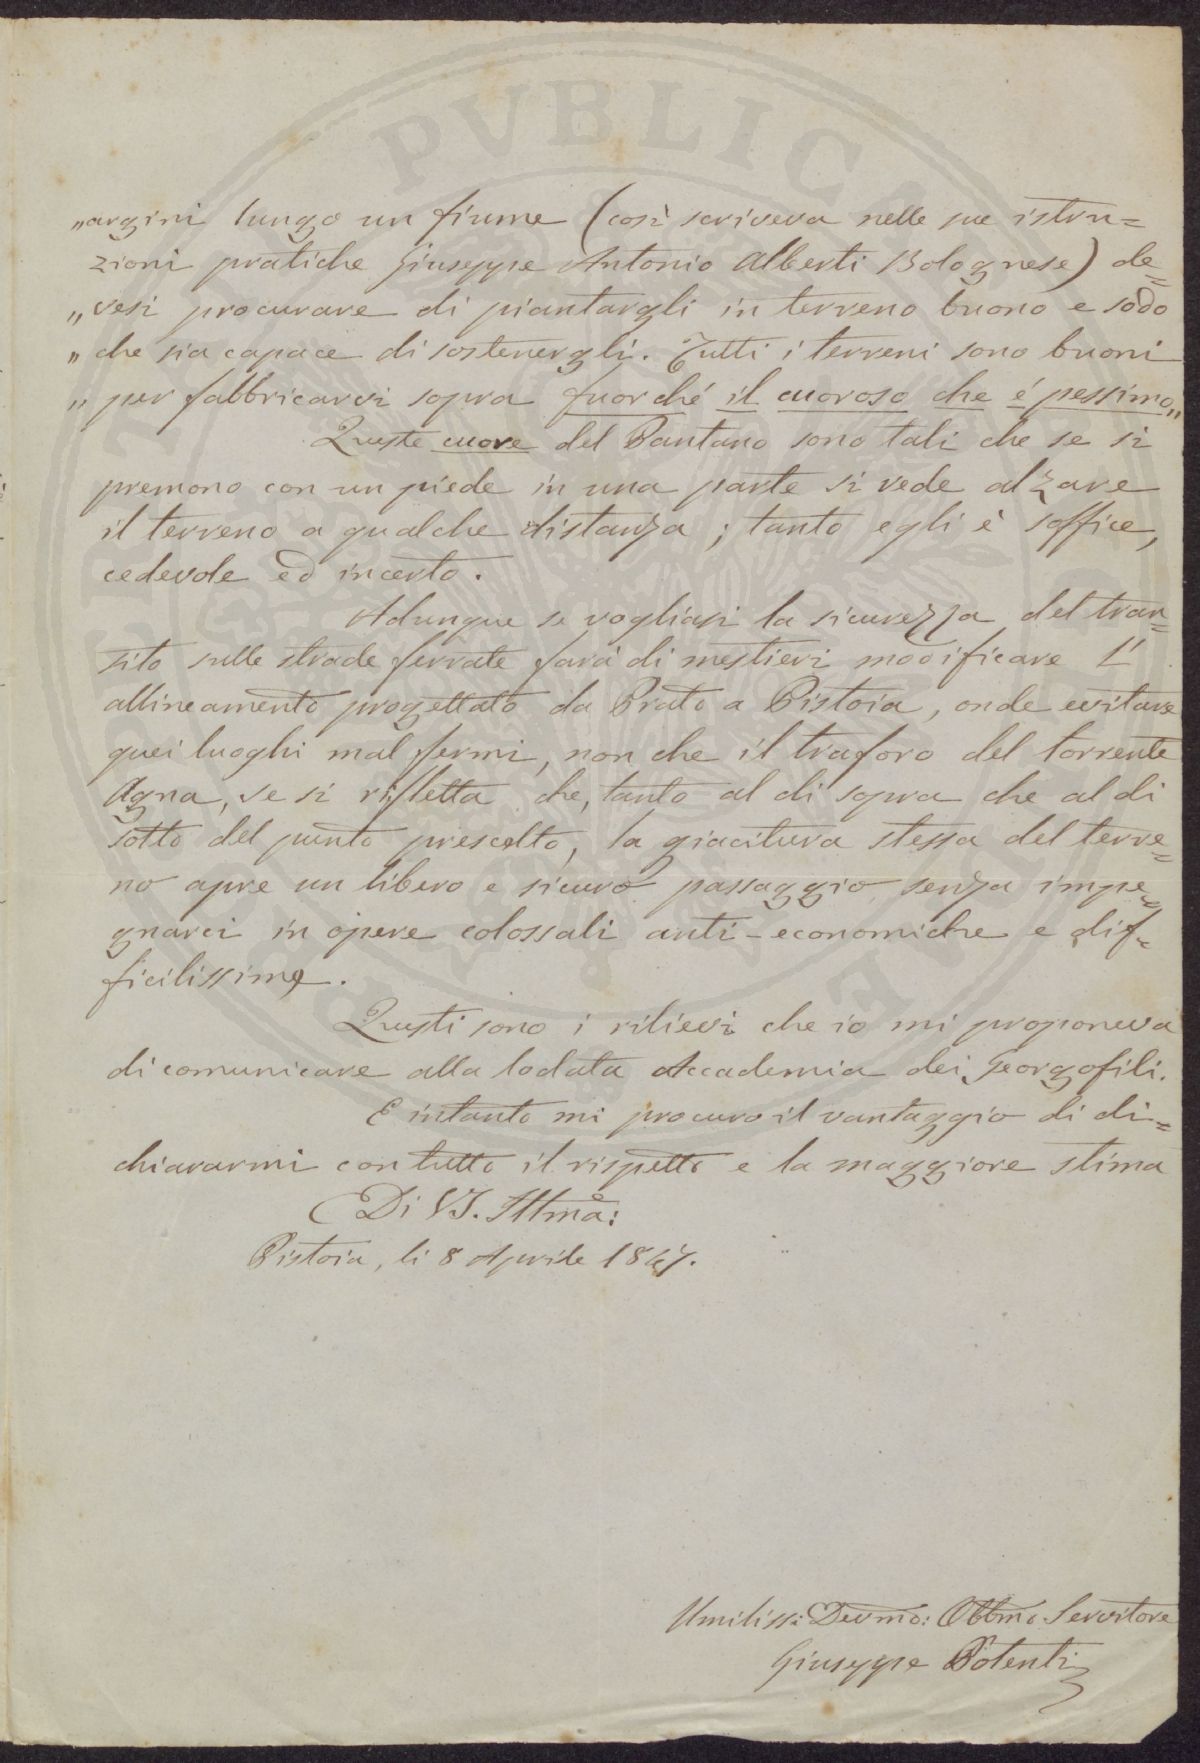 „argini lungo un fiume (così scriveva nelle sue istru=
zioni pratiche Giuseppe Antonio Alberti Bolognese) de=
„vesi procurare di piantargli in terreno buono e sodo
„che sia capace di sostenergli. Tutti i terreni sono buoni
„per fabbricarvi sopra fuorché il cuoroso che é pessimo„
Queste cuore del Pantano sono tali che se si
premono con un piede in una parte si vede alzare
il terreno a qualche distanza; tanto egli è soffice,
cedevole ed incerto.
Adunque se vogliasi la sicurezza del tran=
sito sulle strade ferrate farà di mestieri modificare l'
allineamento progettato da Prato a Pistoia, onde evitare
quei luoghi mal fermi, non che il traforo del torrente
Agna, se si rifletta che, tanto al di sopra che al di
sotto del punto prescelto, la giacitura stessa del terre=
no apre un libero e sicuro passaggio senza impe=
gnarci in opere colossali anti-economiche e dif=
ficilissime.
Questi sono i rilievi che io mi proponeva
di comunicare alla lodata Accademia dei Georgofili.
E intanto mi procuro il vantaggio di di=
chiararmi con tutto il rispetto e la maggiore stima
Di VS. Illma:
Pistoia, li 8 Aprile 1847.
Umiliss: Devmo: Obbmo Servitore
Giuseppe Potenti
PVBLICA